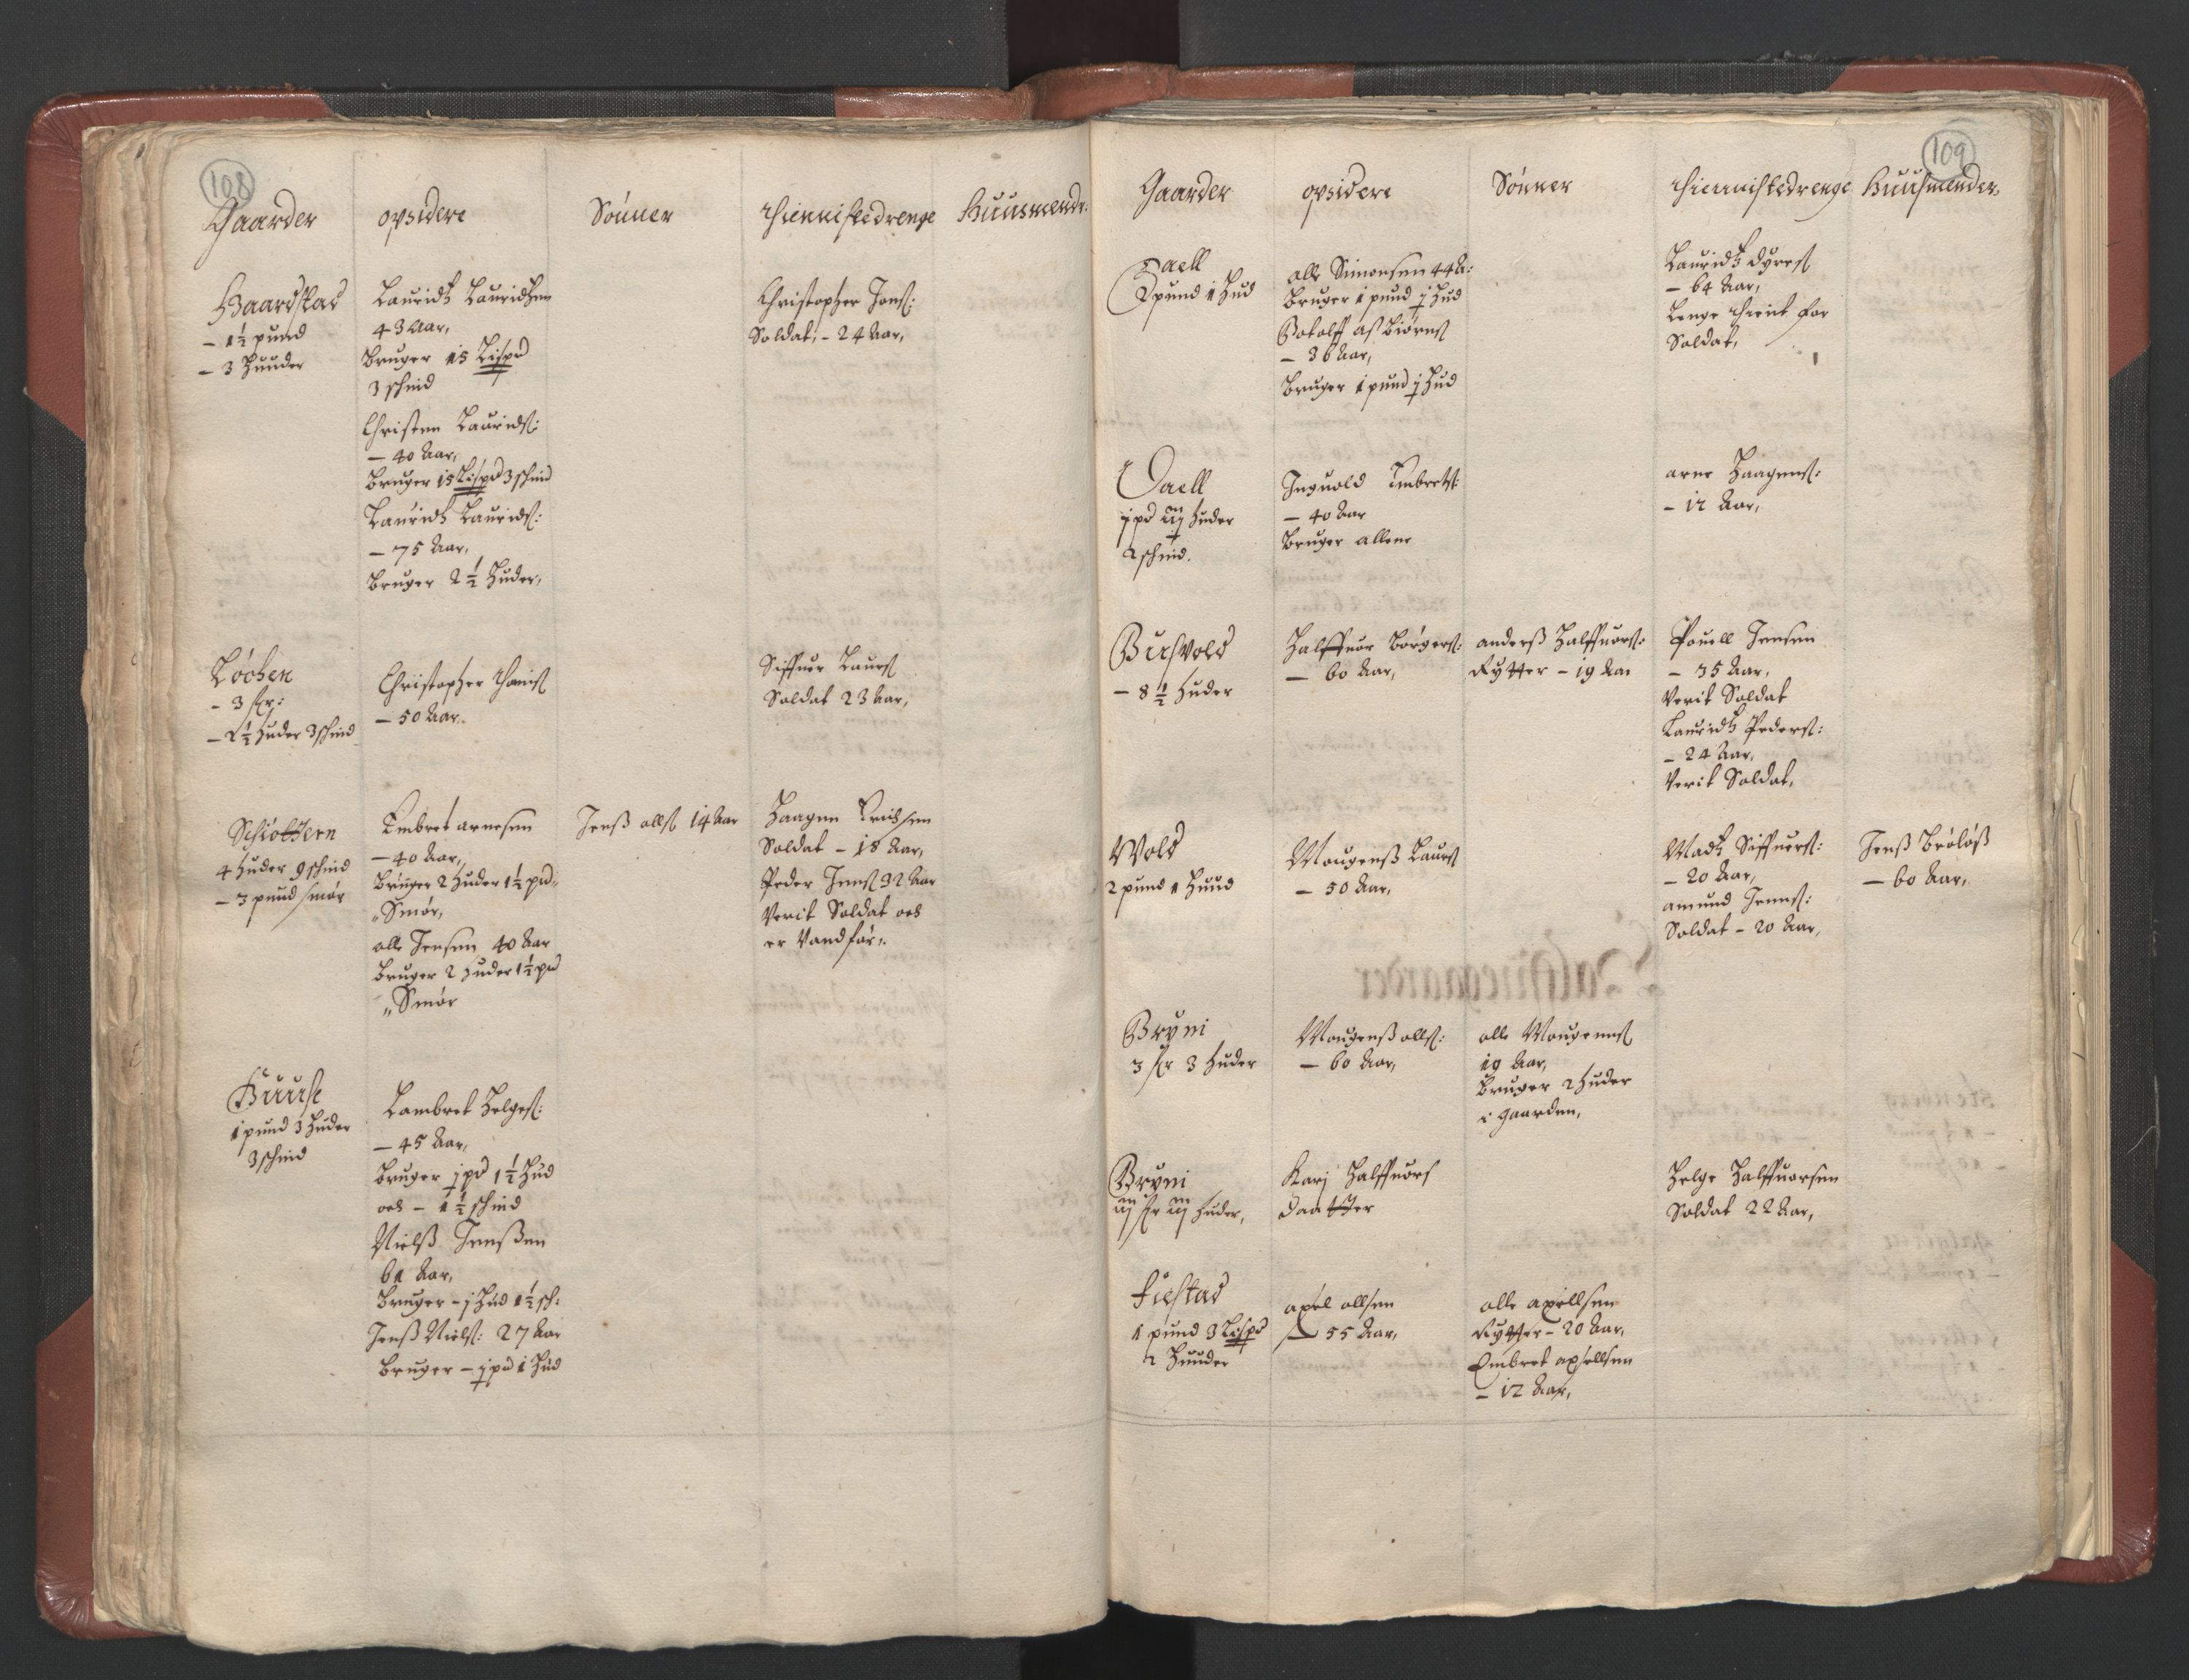 108
Gaarder opsidere Sönner thiennistedrenge Huusmendr:
Baardstad
- 1½ pund
- 3 Huuder
Lauridtz Lauridtzen
43 Aar,
bruger 15 Lispd
3 schind
Christen Lauridß:
- 40 Aar,
bruger 15 Lispd 3 schind
Lauridtz Lauridß:
- 75 Aar,
bruger 2½ Huder,
Christopher Jonß:
Soldat, - 24 Aar,
Löchen
- 3 skr:
- 2½ Huder 3 schind
Christopher
- 50 Aar.
Siffuer Laurß
Soldat 23 Aar,
Schiöttern
4 Huder 9 schind
- 3 pund smør
Embret arnesen
- 40 Aar,
bruger 2 Huder 1½ pd
Smør,
olle Jensen 40 Aar
bruger 2 Huder 1½ pd
Smør
Jenß ollß 14 Aar
Haagen Erichsen
Soldat - 18 Aar,
Peder Jenß 32 Aar
Verit Soldat och
er Vandför.
Huuse
1 pund 3 Huder
3 schind
Lambret Helgeß:
- 45 Aar,
bruger j pd 1½ Hud
och - 1½ schind
Nielß Jenßen
61 Aar,
bruger - j Hud 1½ sch:
Jenß Nielß: 27 Aar
bruger - j pd 1 Hud
109
Gaarder opsidere Sönner thiennistedrenge Huusmender
Daell
2 pund 1 Hud
olle Simonsen 44 A:
bruger 1 pund j Hud
Botolff aßbiörnß
- 36 Aar,
bruger 1 pund j Hud
Lauridtz dyreß
- 64 Aar,
Lenge thient for
Soldat,
Daell
j pd iij Huder
2 schind.
Inguold Embretß:
- 40 Aar
bruger allene
arne Haagenß:
- 12 Aar,
- 8½ Huder
Halffuor börgerß:
- 60 Aar,
anderß Halffuorß:
Rytter - 19 Aar
Pouell Jensen
- 35 Aar,
Verit Soldat
Lauridtz Pederß:
- 24 Aar,
Verit Soldat,
Wold
2 pund 1 Huud
Mougenß Laurß
- 50 Aar,
Madtz Siffuerß:
- 20 Aar,
amund Jennß:
Soldat - 20 Aar,
Jenß Brölöß
- 60 Aar,
Bryni
3 skr 3 Huder
Mougenß ollß:
- 60 Aar,
olle Mougenß
19 Aar,
bruger 2 Huder
i gaarden,
Bryni
iij skr iij Huder,
Karj Halffuors
daatter
Helge Halffuorsen
Soldat 22 Aar,
Fiestad
1 pund 3 Lispd
2 Huuder
axel ollsen
55 Aar,
olle axellsen
Rytter - 20 Aar,
Embret axellsen
- 12 Aar,